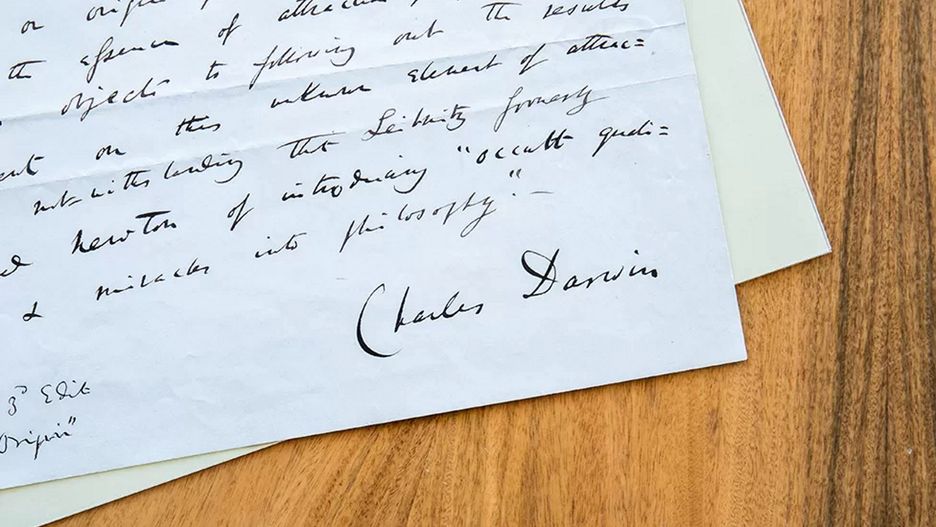 or origin
the essence of attraction
objects to following out the results
on this unknown element of attrac=
notwithstanding that Leibnitz formerly
Newton of introducing "occult quali=
& miracles into philosophy."—
Charles Darwin
3d Edit
Origin"